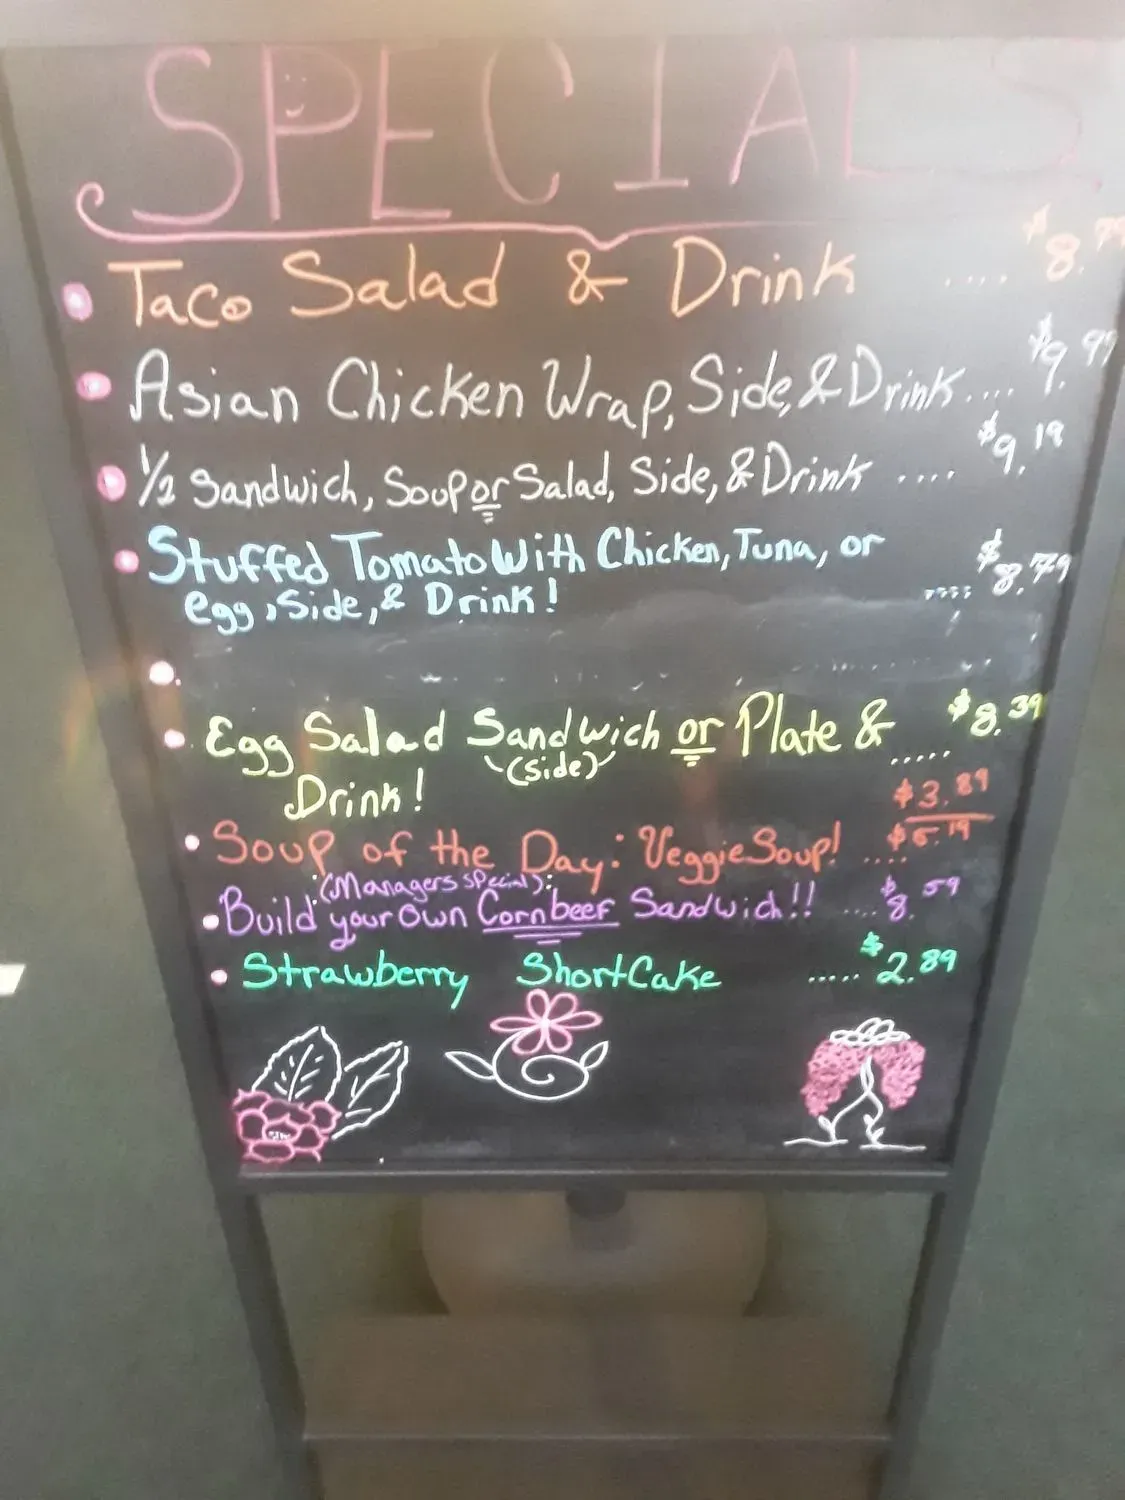 SPECIALS
• Taco Salad & Drink .... $8.79
• Asian Chicken Wrap, Side, & Drink.... $9.99
• 1/2 Sandwich, Soup or Salad, Side, & Drink .... $9.19
• Stuffed Tomato With Chicken, Tuna, or
egg, Side, & Drink! .... $8.79
•
• Egg Salad Sandwich or Plate & ..... $8.39
(Side)
Drink!
$3.89
• Soup of the Day: Veggie Soup! .... $5.19
(Managers Special):
• Build your own Cornbeef Sandwich!! .... $8.59
• Strawberry ShortCake ..... $2.89